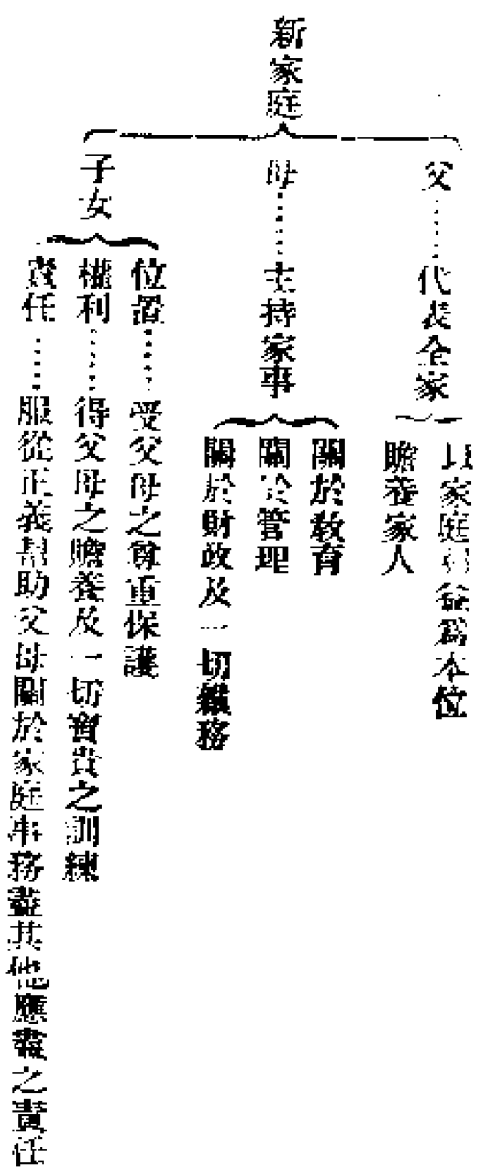 新家庭
父……代表全家
以家庭利益爲本位
贍養家人
母……主持家事
關於教育
關於管理
關於財政及一切雜務
子女
位置……受父母之尊重保護
權利……得父母之贍養及一切寶貴之訓練
責任……服從正義幫助父母關於家庭事務盡其他應盡之責任